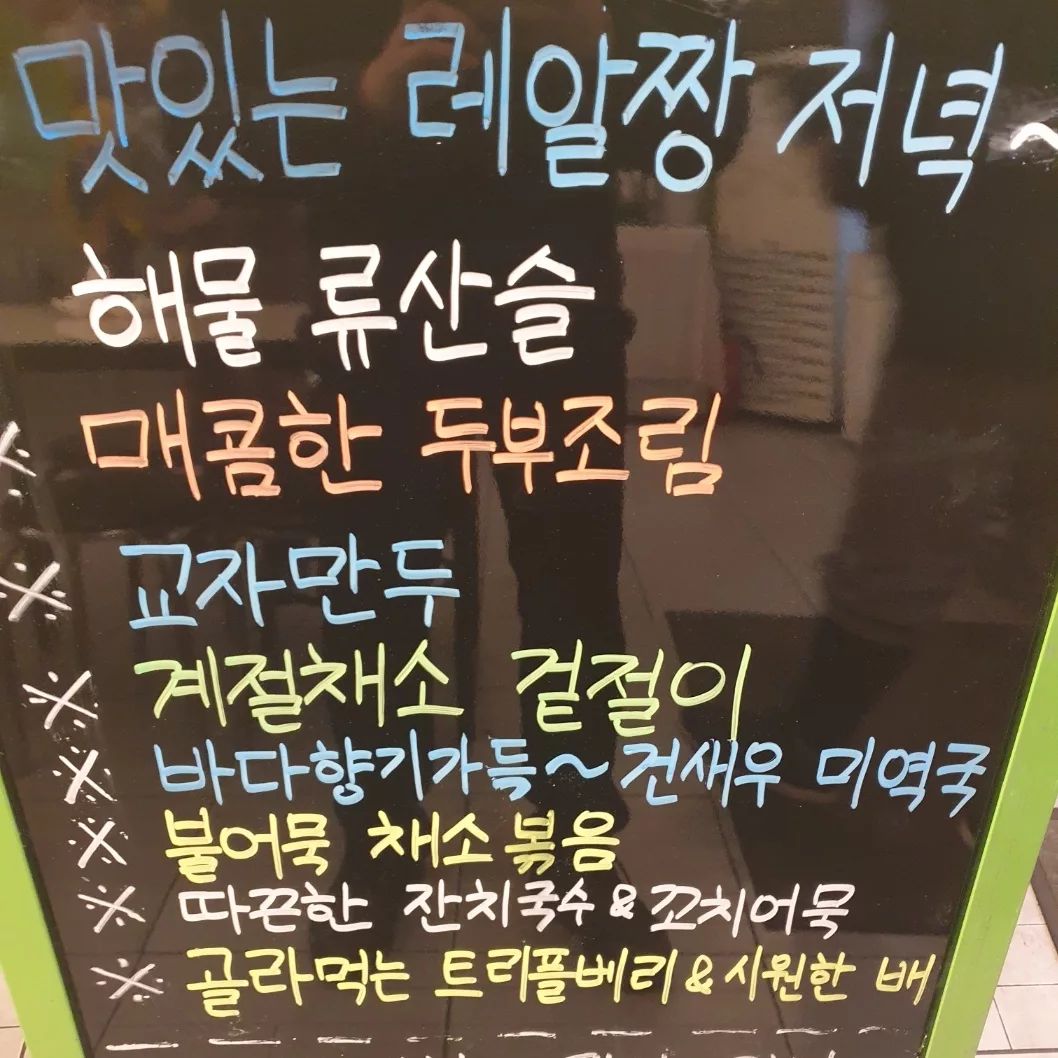 맛있는 레알짱 저녁~
해물 류산슬
※ 매콤한 두부조림
※ 교자만두
※ 계절채소 겉절이
※ 바다향기가득~건새우 미역국
※ 불어묵 채소볶음
※ 따끈한 잔치국수&꼬치어묵
※ 골라먹는 트리플베리&시원한 배